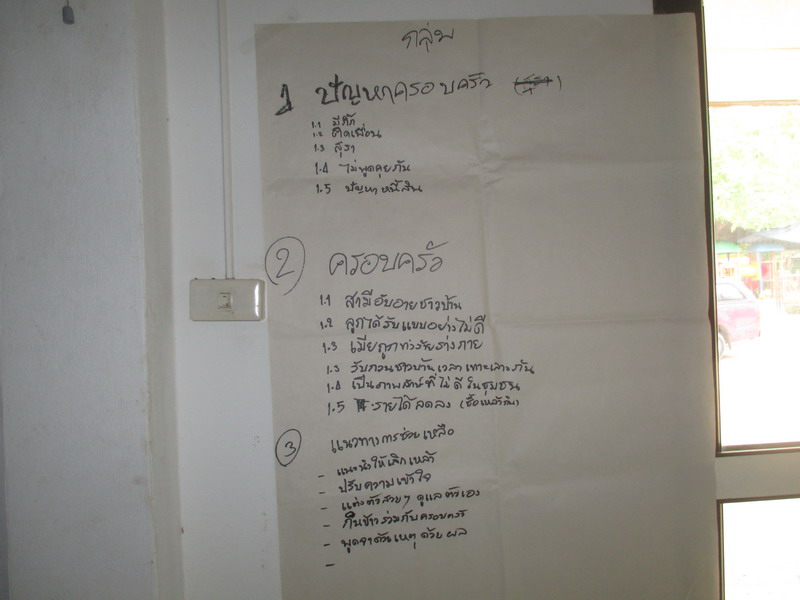 กลุ่ม
1 ปัญหาครอบครัว
1.1 มีกิ๊ก
1.2 ติดเพื่อน
1.3 สุรา
1.4 ไม่พูดคุยกัน
1.5 ปัญหาหนี้สิน
2 ครอบครัว
1.1 สามีอับอายชาวบ้าน
1.2 ลูกได้รับแบบอย่างไม่ดี
1.3 เมียถูกทำร้ายร่างกาย
1.3 รบกวนชาวบ้านเวลาทะเลาะกัน
1.4 เป็นภาพลักษ์ที่ไม่ดีในชุมชน
1.5 รายได้ลดลง (ซื้อเหล้ากิน)
3 แนวทางการช่วยเหลือ
- แนะนำให้เลิกเหล้า
- ปรับความเข้าใจ
- แต่งตัวสวยๆ ดูแลตัวเอง
- กินข้าวร่วมกับครอบครัว
- พูดจาด้วยเหตุด้วยผล
-